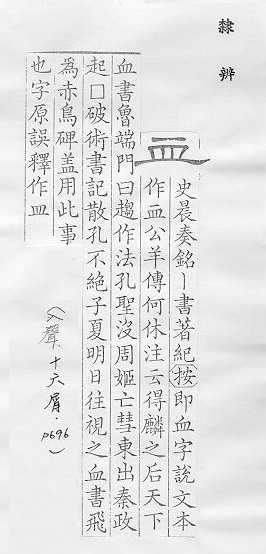 隸辨
血
史晨奏銘丨書著紀按即血字說文本
作血公羊傳何休注云得麟之后天下
血書魯端門曰趨作法孔聖沒周姬亡彗東出秦政
起□破術書記散孔不絕子夏明日往視之血書飛
為赤鳥碑盖用此事
也字原誤釋作皿
（入聲．十六屑．p696）